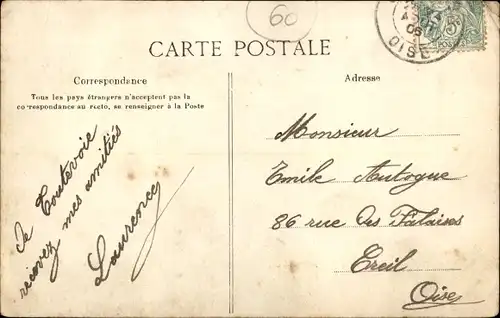 60
OISE
CARTE POSTALE
Correspondance
Tous les pays étrangers n'acceptent pas la
correspondance au recto, se renseigner à la Poste
De Toutevoie
recevez mes amitiés
Laurence
Adresse
Monsieur
Emile Autogue
86 rue des Falaises
Creil
Oise